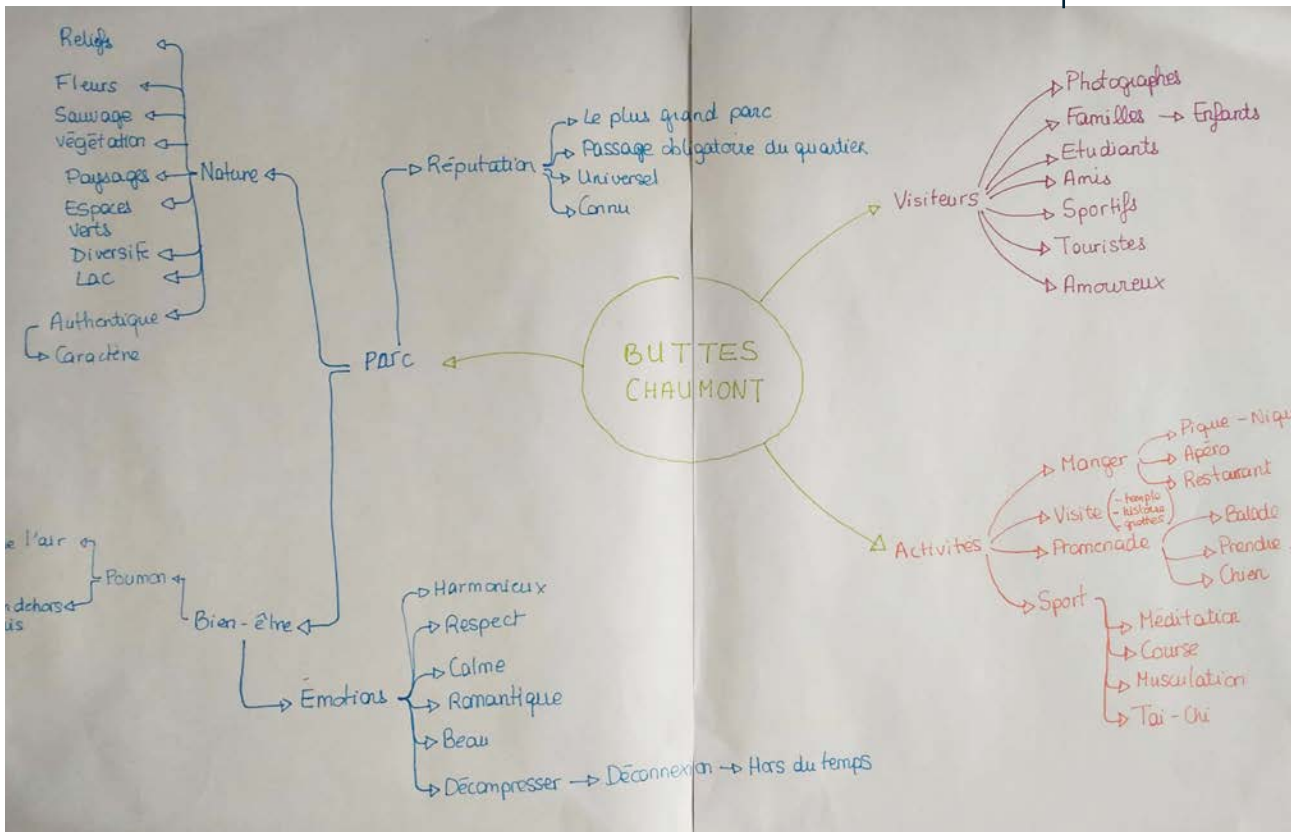 BUTTES
CHAUMONT
Parc
Nature
Reliefs
Fleurs
Sauvage
Végétation
Paysages
Espaces
verts
Diversifé
Lac
Authentique
Caractère
Réputation
Le plus grand parc
Passage obligatoire du quartier
Universel
Connu
Bien-être
Poumon
l'air
dehors
Émotions
Harmonieux
Respect
Calme
Romantique
Beau
Décompresser
Déconnexion
Hors du temps
Visiteurs
Photographes
Familles
Enfants
Etudiants
Amis
Sportifs
Touristes
Amoureux
Activités
Manger
Pique-Niqu
Apéro
Restaurant
Visite
- temple
- histoire
- grottes
Promenade
Balade
Prendre
Chien
Sport
Méditation
Course
Musculation
Tai-Chi